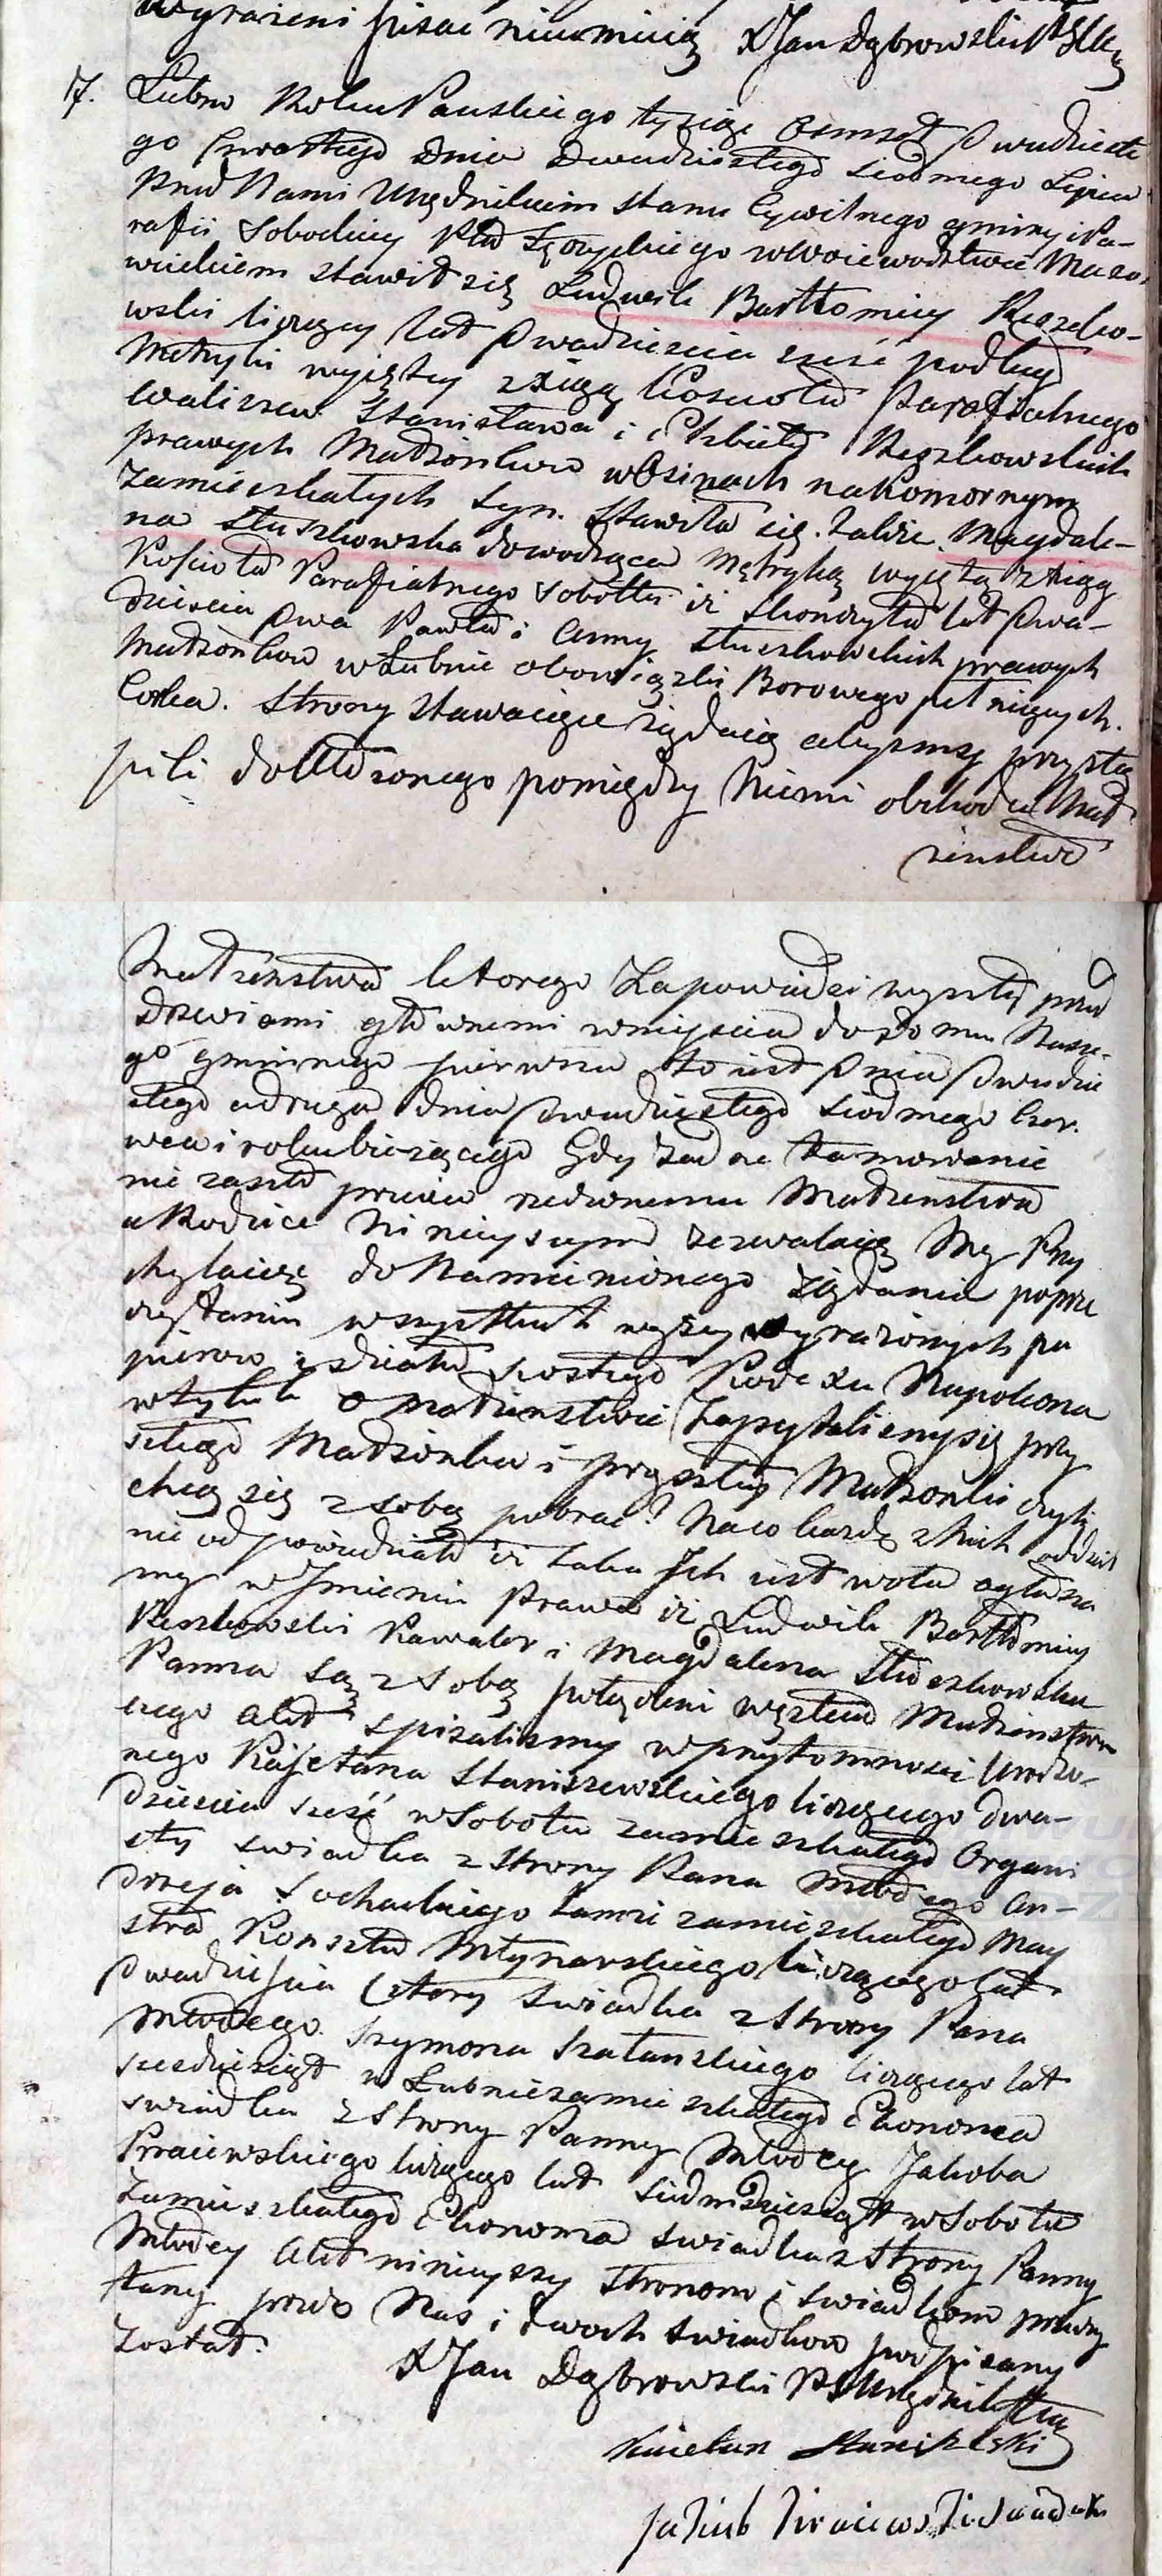 wyrażeni pisać nieumieją XJan Dąbrowski
17. Lubno Roku Pańskiego tysiąc Osmset Dwudzieste
go Czwartego Dnia Dwudziestego Siodmego Lipca
Przed Nami Urzędnikiem stanu Cywilnego gminy i Pa-
rafii Sobockiey Ptu Łęczyckiego w Woiewodztwie Mazo-
wieckiem stawił się Ludwik Bartłomiey Reszko-
wski liczący lat Dwadziescia szesć podług
Metryki wyjętey z Xiąg Koscioła Parafialnego
Waliszew Stanisława i Elzbiety Reszkowskich
prawych Małżonkow w Osinach na Komornym
Zamieszkałych Syn. Stawiła się także Magdale-
na Stuszkowska dowodząca Metryką wyjętą z Xiąg
Kościoła Parafialnego Sobotki iż skonczyła lat Dwa-
dziescia Dwa Pawła i Anny Stuszkowskich prawych
Małżonkow w Lubnie obowiązki Borowego pełniących
Corka. Strony stawaiące żądaią abysmy przystą
pili do Ułożonego pomiędzy Niemi obchodu Mał
żenstwa
Małżenstwa ktorego Zapowiedzi wyszły przed
Drzwiami głownemi wniyscia do Domu Nasze-
go gminnego pierwsza to iest Dnia Dwudzie
stego a druga dnia Dwudziestego Siodmego Czer.
wca i roku bieżącego Gdy żadne tamowanie
nie zaszło przeciw rzeczonemu Małżenstwu
a Rodzice Ninieyszym zezwalaią My Przy
chylaiąc się do Namienionego żądania poprze
czytaniu wszystkich wyżey wyrażonych pa
pierow i działu szostego Kodexu Napoleona
w tytule o Małżenstwie Zapytalismy się przy
szłego Małżonka i przyszłey Małżonki czyli
chcą się z sobą pobrać? Na co każde z Nich oddziel
nie odpowiedziało iż taka Ich iest wola ogłasza
my w Jmieniu Prawa iż Ludwik Bartłomiey
Reszkowski Kawaler i Magdalena Stuszkowska
Panna Są z Sobą połączeni węzłem Małżenstwa
czego Akt spisalismy w przytomnosci Urodzo-
nego Kajetana Staniszewskiego liczącego dwa-
dziescia szesć w Sobotce zamieszkałego Organi
sty swiadka z strony Pana Młodego An-
drzeja Sochackiego tamże zamieszkałego May
stra Konsztu Młynarskiego liczącego lat
Dwadziescia Cztery Swiadka z Strony Pana
Młodego. Szymona Szatanskiego liczącego lat
szescdziesiąt w Lubnie zamieszkałego Ekonoma
swiadka z Strony Panny Młodey Jakoba
liczącego lat Siedmdziesiąt w Sobotce
Zamieszkałego Ekonoma swiadka z strony Panny
Młodey Akt ninieyszy Stronom i swiadkom przeczy
tany przez Nas i dwoch swiadkow podpisany
Został.
XJan Dąbrowski
Kaietan
Jakub